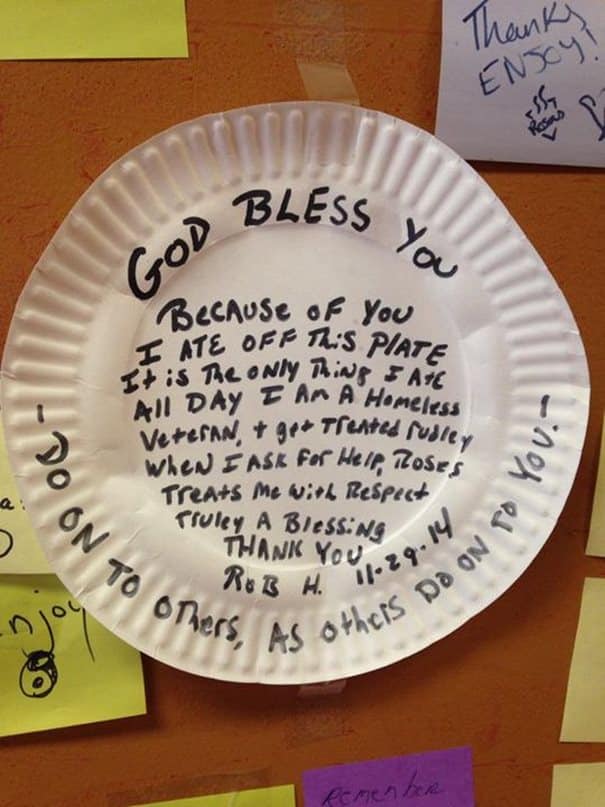 Thanks
ENJOY!
GOD BLESS YOU
BECAUSE OF YOU
I ATE OFF THiS PLATE
It is The ONLY Thing I Ate
All DAY I Am A Homeless
VeterAN, + get Treated rudley
WheN I Ask For Help, Roses
Treats Me with Respect
Truley A Blessing
THANK YOU
RoB H. 11-29-14
- DO ON TO OTHers, AS OthErS DO ON TO YOU. -
njoy
Remember